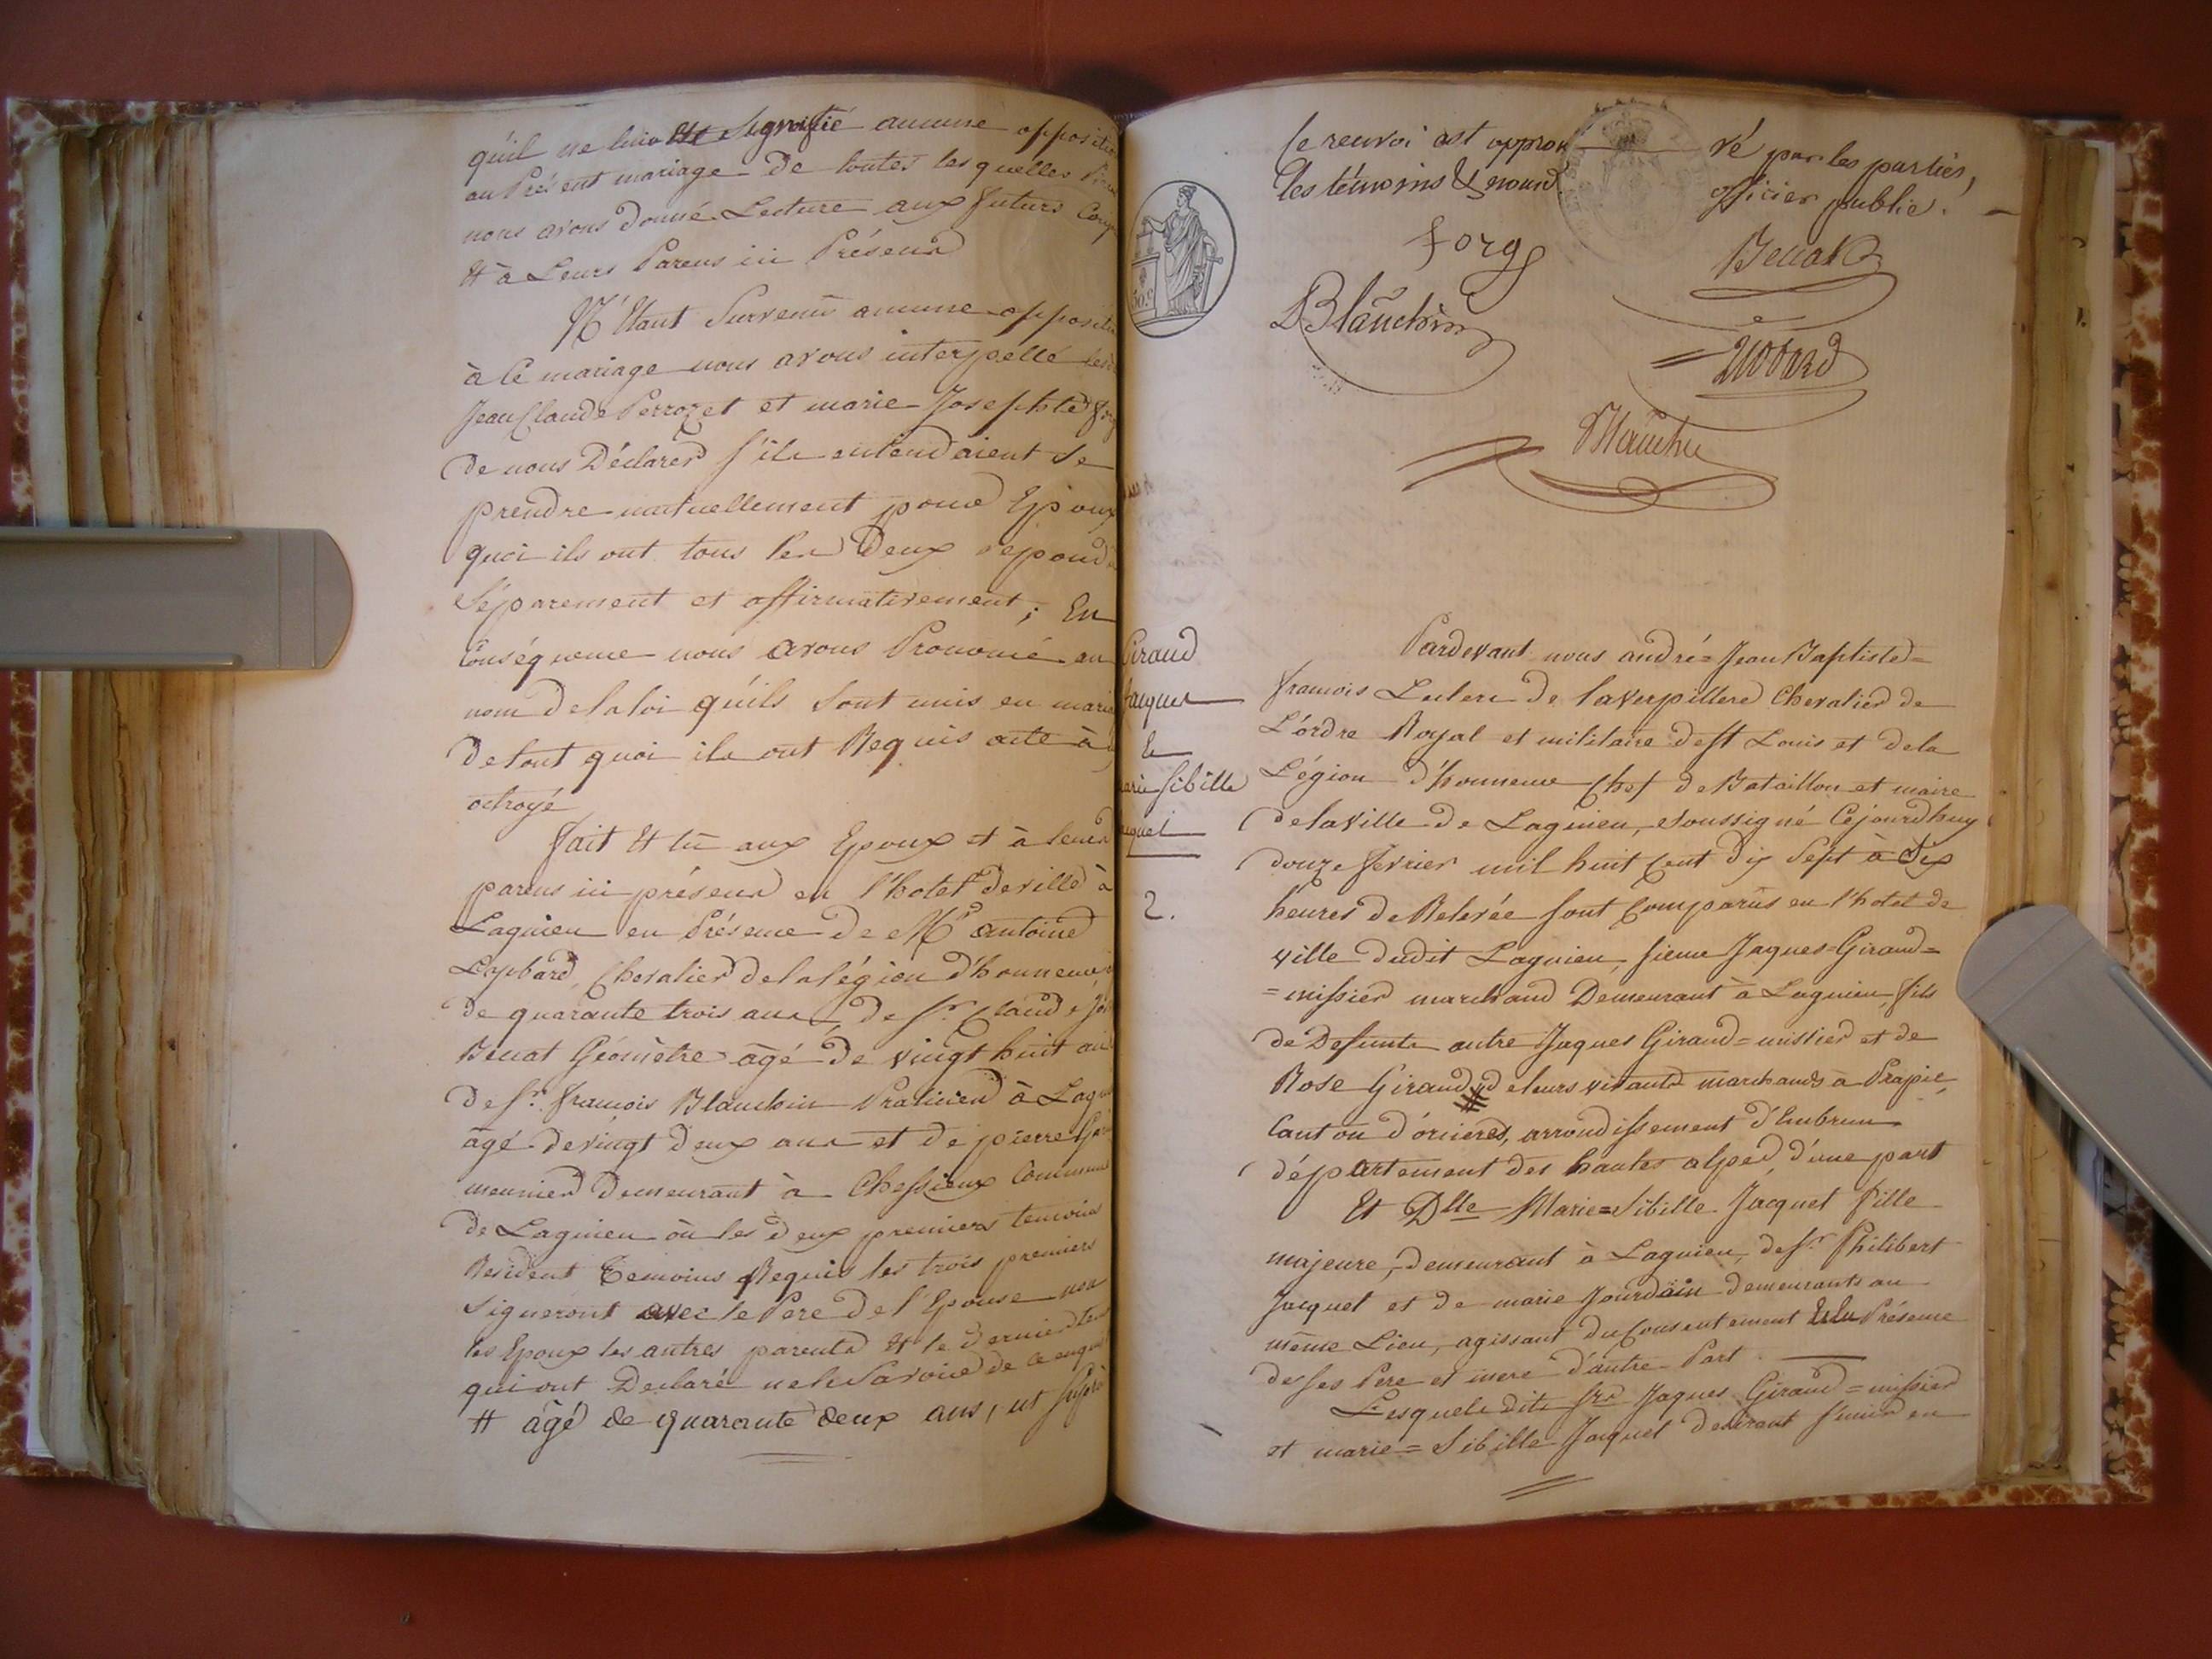 qu'il ne lui a été signifié aucune oppositio
au Présent mariage De toutes lesquelles Piec
nous avons donné Lecture aux futurs Conj
Et à Leurs Parens ici Présens
N'Etant Survenu aucune oppositi
à Ce mariage nous avons interpellé les
Jean Claude Perrozet et marie Josephte forg
De nous Déclarer s'ils entendaient Se
prendre mutuellement pour Epoux
quoi ils ont tous les Deux repondu
Séparement et affirmativement; En
Conséquence nous avons Prononcé au
nom De la loi qu'ils Sont unis en maria
De tout quoi ils ont Requis acte à
octroyé
fait Et lu aux Epoux et à leurs
parens ici présens en l'hotel de ville à
Lagnieu en Présence De Mr antoine
Chevalier de la légion d'honneur
de quarante trois ans, De Sr. Claude
Benat Géomètre âgé De vingt huit an
De Sr. francois Blanchin Praticien à Lagn
âgé de vingt deux ans et de pierre
meunier Demeurant à Chessieux Commune
De Lagnieu où les Deux premiers temoins
Resident Temoins Requis les trois premiers
Signeront avec le Pere De l'Epouse non
les Epoux les autres parents Et le Dernier tem
qui ont Declaré ne le Savoir de ce enquis
# âgé de quarante deux ans, ut supra
le renvoi est approu vé par les parties,
les témoins & nous officier public.
forg
Benat
Blanchin
Blanchin
Pardevant nous andré=Jean Baptiste=
francois Leclerc De laVerpilliere Chevalier de
L'ordre Royal et militaire de St Louis et de la
Légion d'honneur Chef de Bataillon et maire
de la ville De Lagnieu, soussigné Cejourdhuy
douze fevrier mil huit Cent Dix Sept à Six
heures De Relevée sont Comparus en l'hotel de
ville dudit Lagnieu, sieur Jaques=Giraud=
=missier marchand Demeurant à Lagnieu, fils
de Defunts autre Jaques Giraud=missier et de
Rose Giraud de leurs vivants marchands à Prapic,
Canton d'orcieres, arrondissement d'Embrun
département des hautes alpes, d'une part
Et Dlle Marie=Sibille Jacquet Fille
majeure, demeurant à Lagnieu, de Sr. Philibert
Jacquet et de marie Jourdain demeurants au
même Lieu, agissant du Consentement Et la Présence
de ses Pere et mere d'autre Part
Lesquels dits srs Jaques Giraud=missier
et marie=Sibille Jacquet desirant s'unir en
Giraud
Jacques
&
marie sibille
jacquet
2.